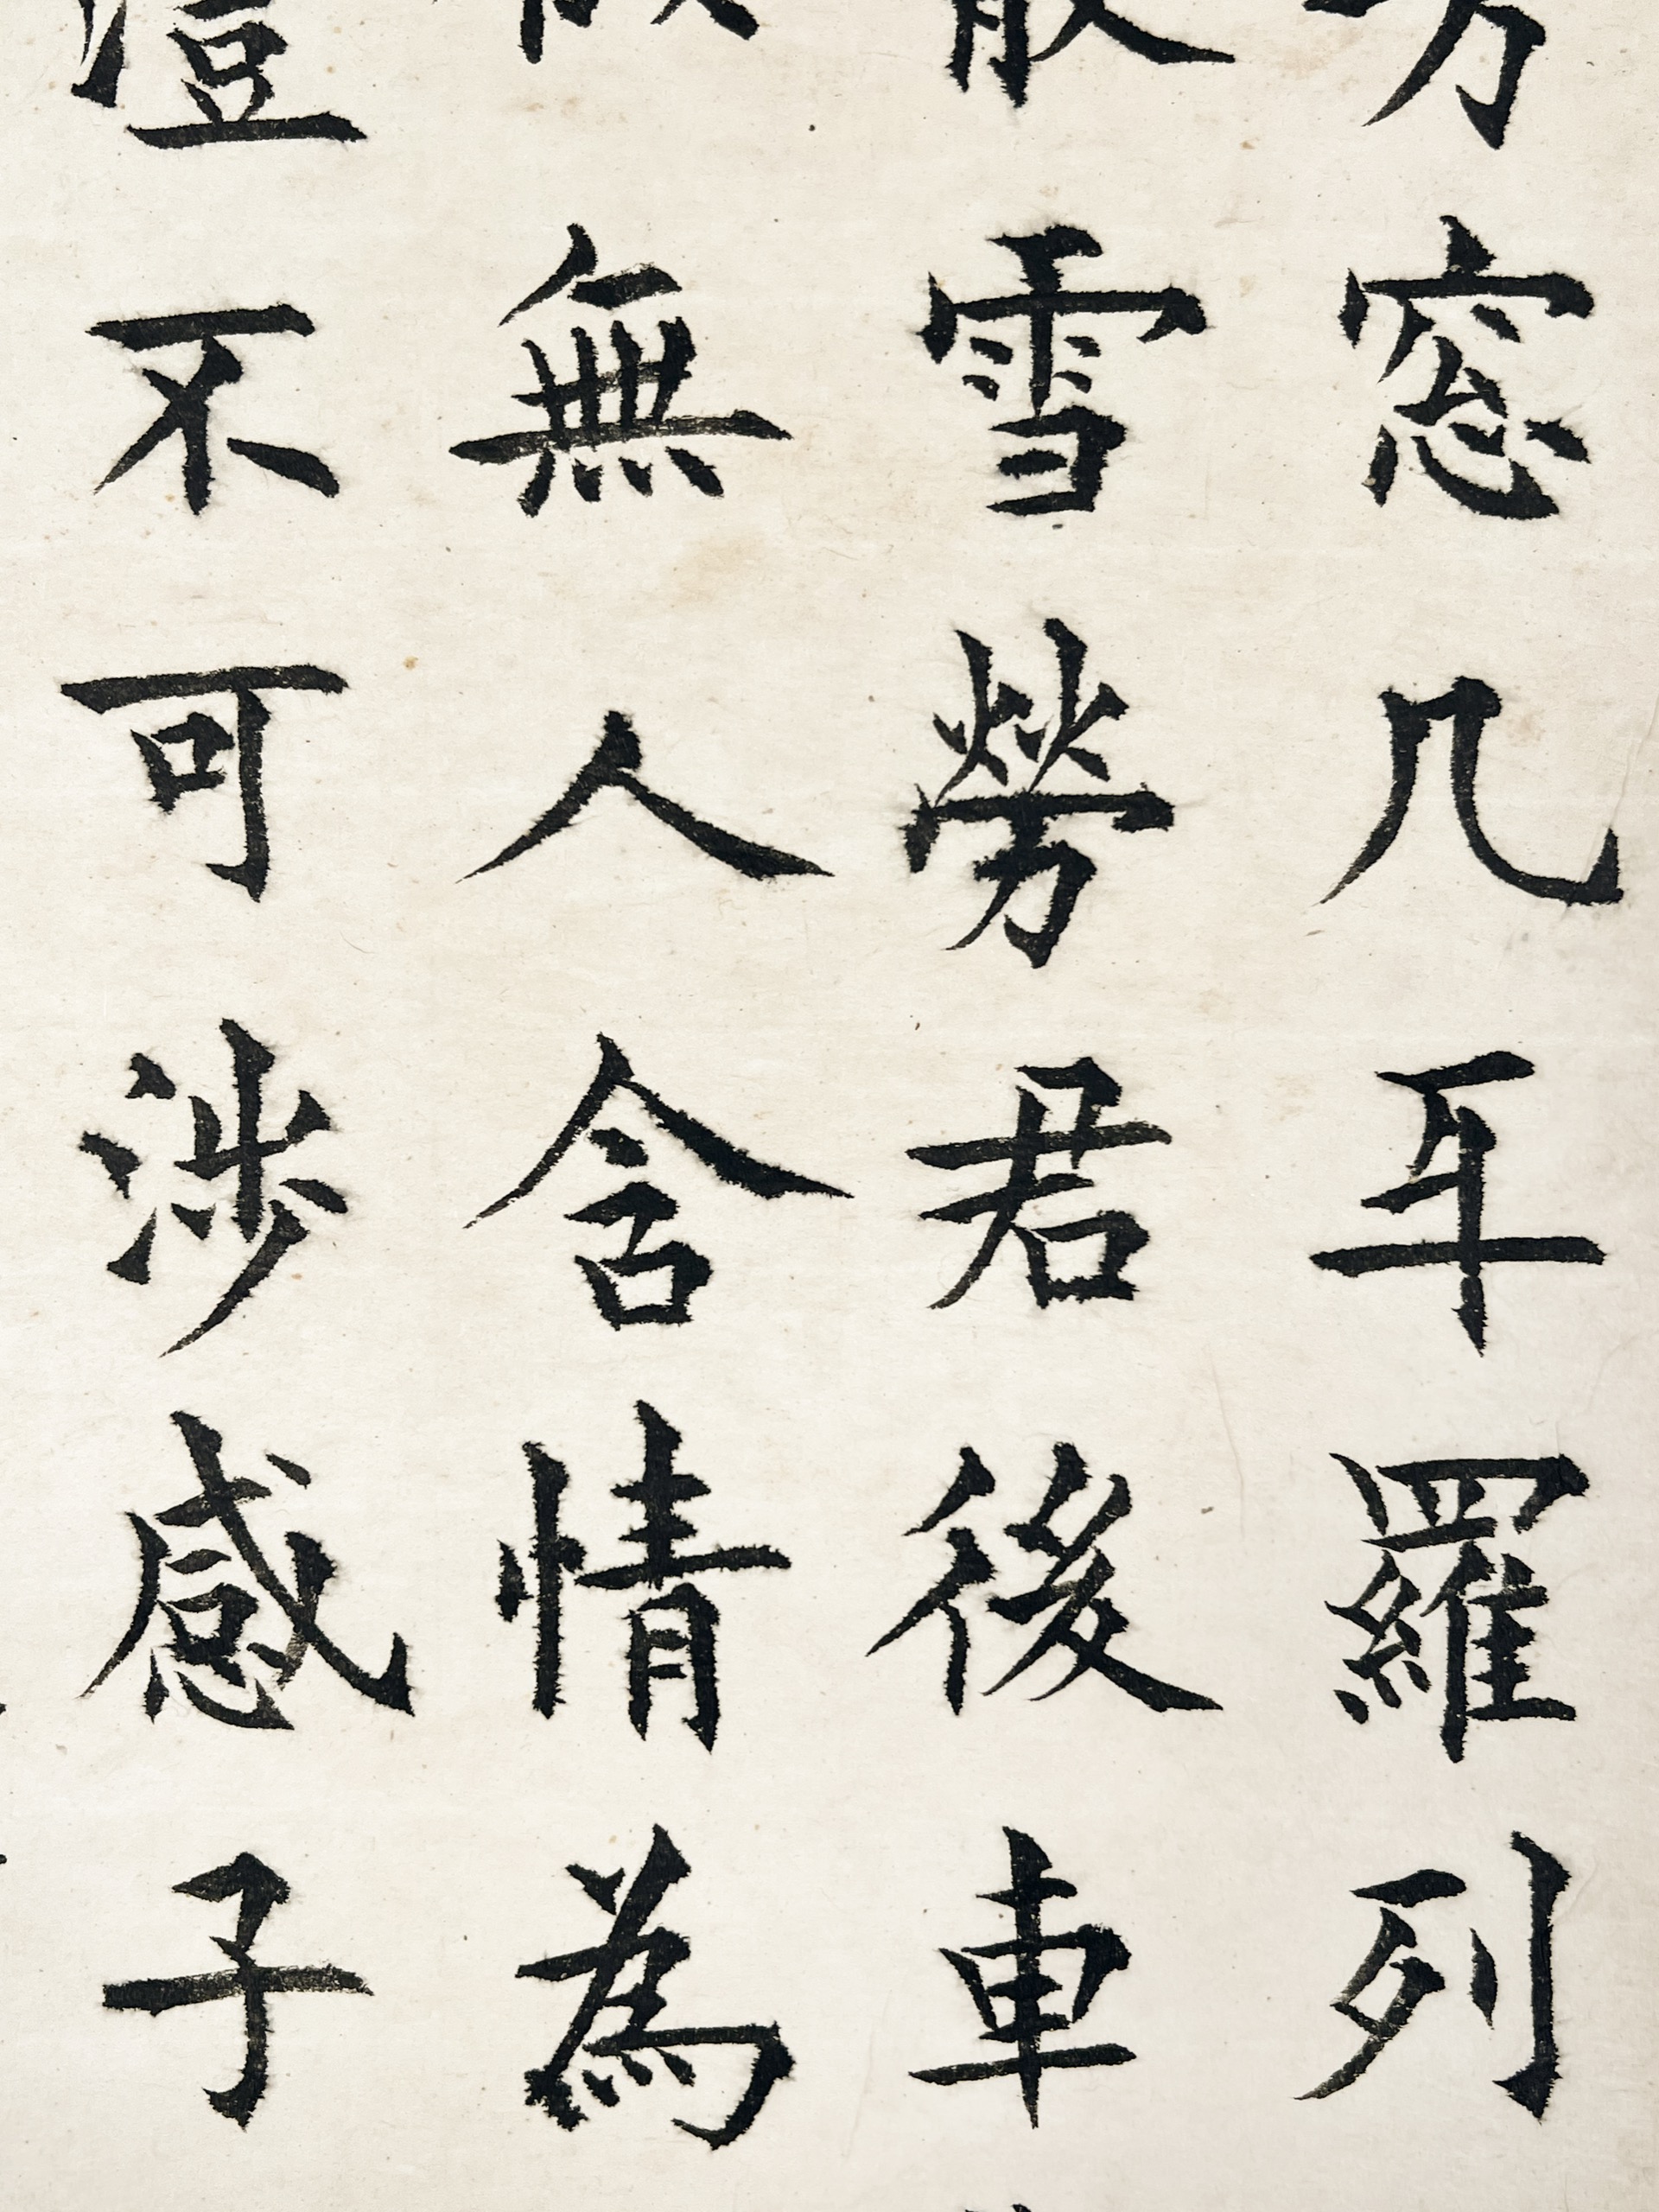 窓几羅列
雪勞君後車
無人含情為
不可涉感子